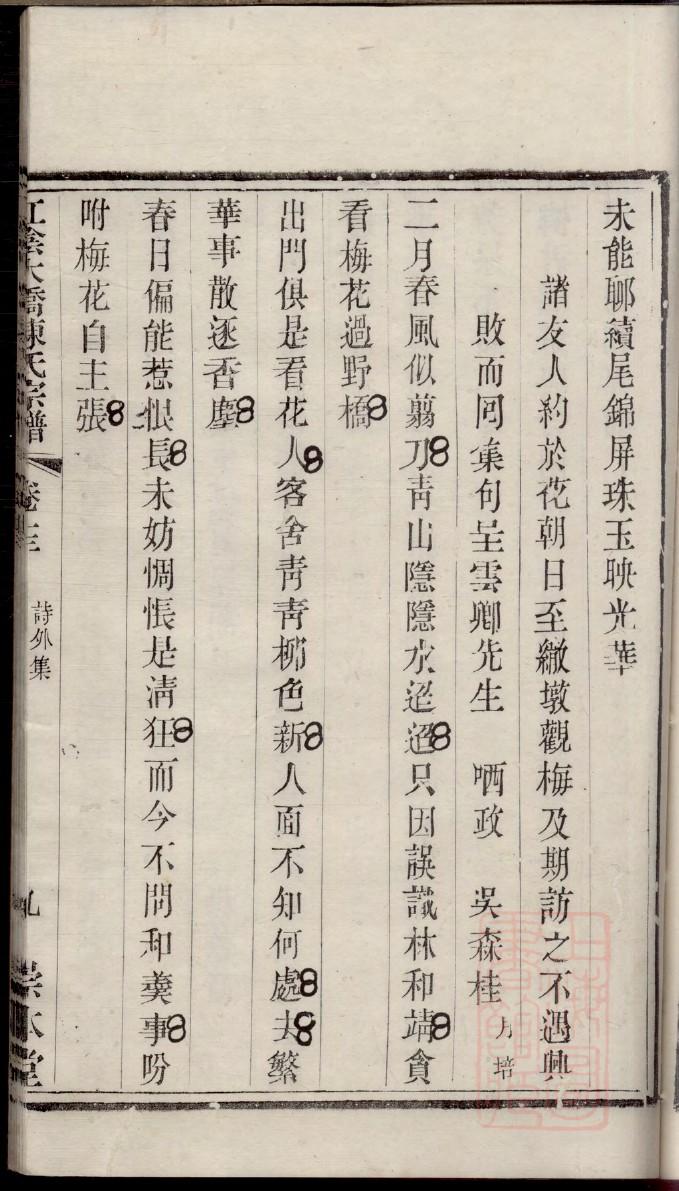 未能聊續尾錦屏珠玉映光華
諸友人約於花朝日至繖墩觀梅及期訪之不遇興
敗而囘集句呈雲卿先生 哂政 吳森桂 月培
二月春風似翦刀靑山隱隱水迢迢只因誤識林和靖貪
看梅花過野橋
出門俱是看花人客舍靑靑柳色新人面不知何處去繁
華事散逐香塵
春日偏能惹恨長未妨惆悵是淸狂而今不問和羹事吩
咐梅花自主張
江陰大橋陳氏宗譜 卷 詩外集 九 崇本堂